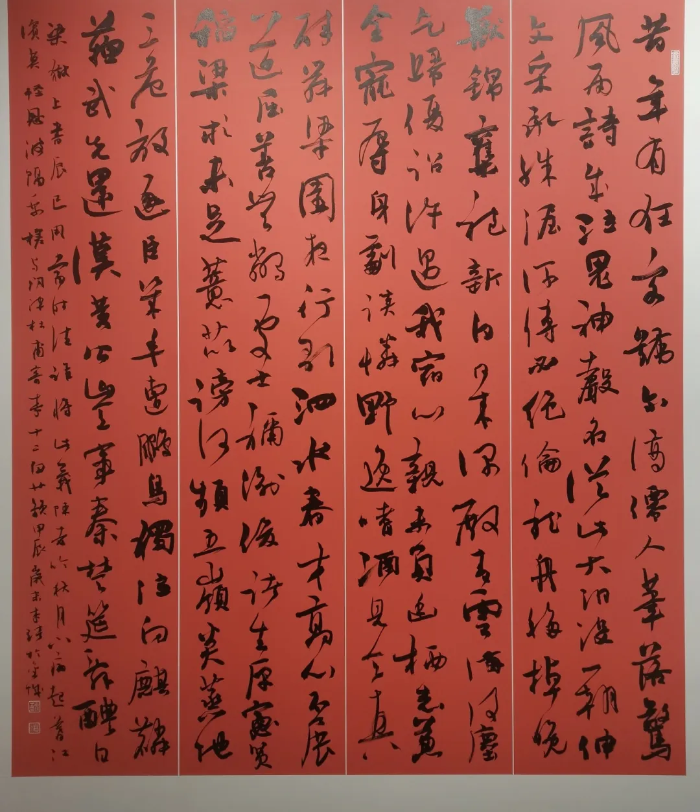 昔年有狂客號尔謫僊人筆落驚
風雨詩成泣鬼神聲名從此大汨沒一朝伸
文采承殊渥流傳必絕倫龍舟移棹晚
獸錦奪袍新白日來深殿青雲滿後塵
乞歸優詔許遇我宿心親未負幽栖志兼
全寵辱身劇談憐野逸嗜酒見天真
醉舞梁園夜行歌泗水春才高心不展
道屈善無鄰處士禰衡俊諸生原憲貧
稻梁求未足薏苡謗何頻五嶺炎蒸地
三危放逐臣幾年遭鵩鳥獨泣向麒麟
蘇武先還漢黃公豈事秦楚筵辭醴日
梁獄上書辰已用當時法誰將此義陳老吟秋月下病起暮江
濱莫怪恩波隔乘槎與問津杜甫寄李十二白廿韻甲辰歲末李